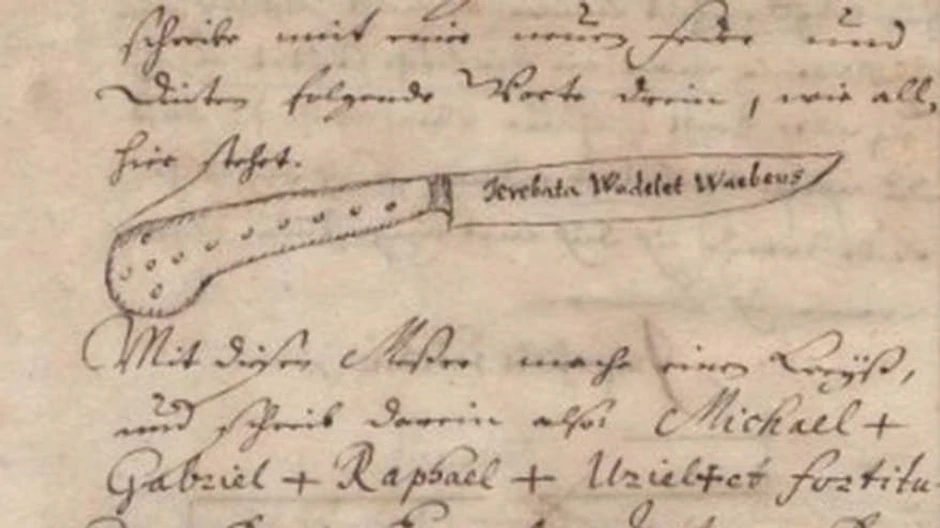 schreibe mit einer neuen feder und
Dinten folgende Worte drein, wie all,
hier stehet.
Terebata Wadelet Waebeus
Mit diesen Messer mache einen Creÿß,
und schreib darein also: Michael +
Gabriel + Raphael + Uriel + et fortitu-